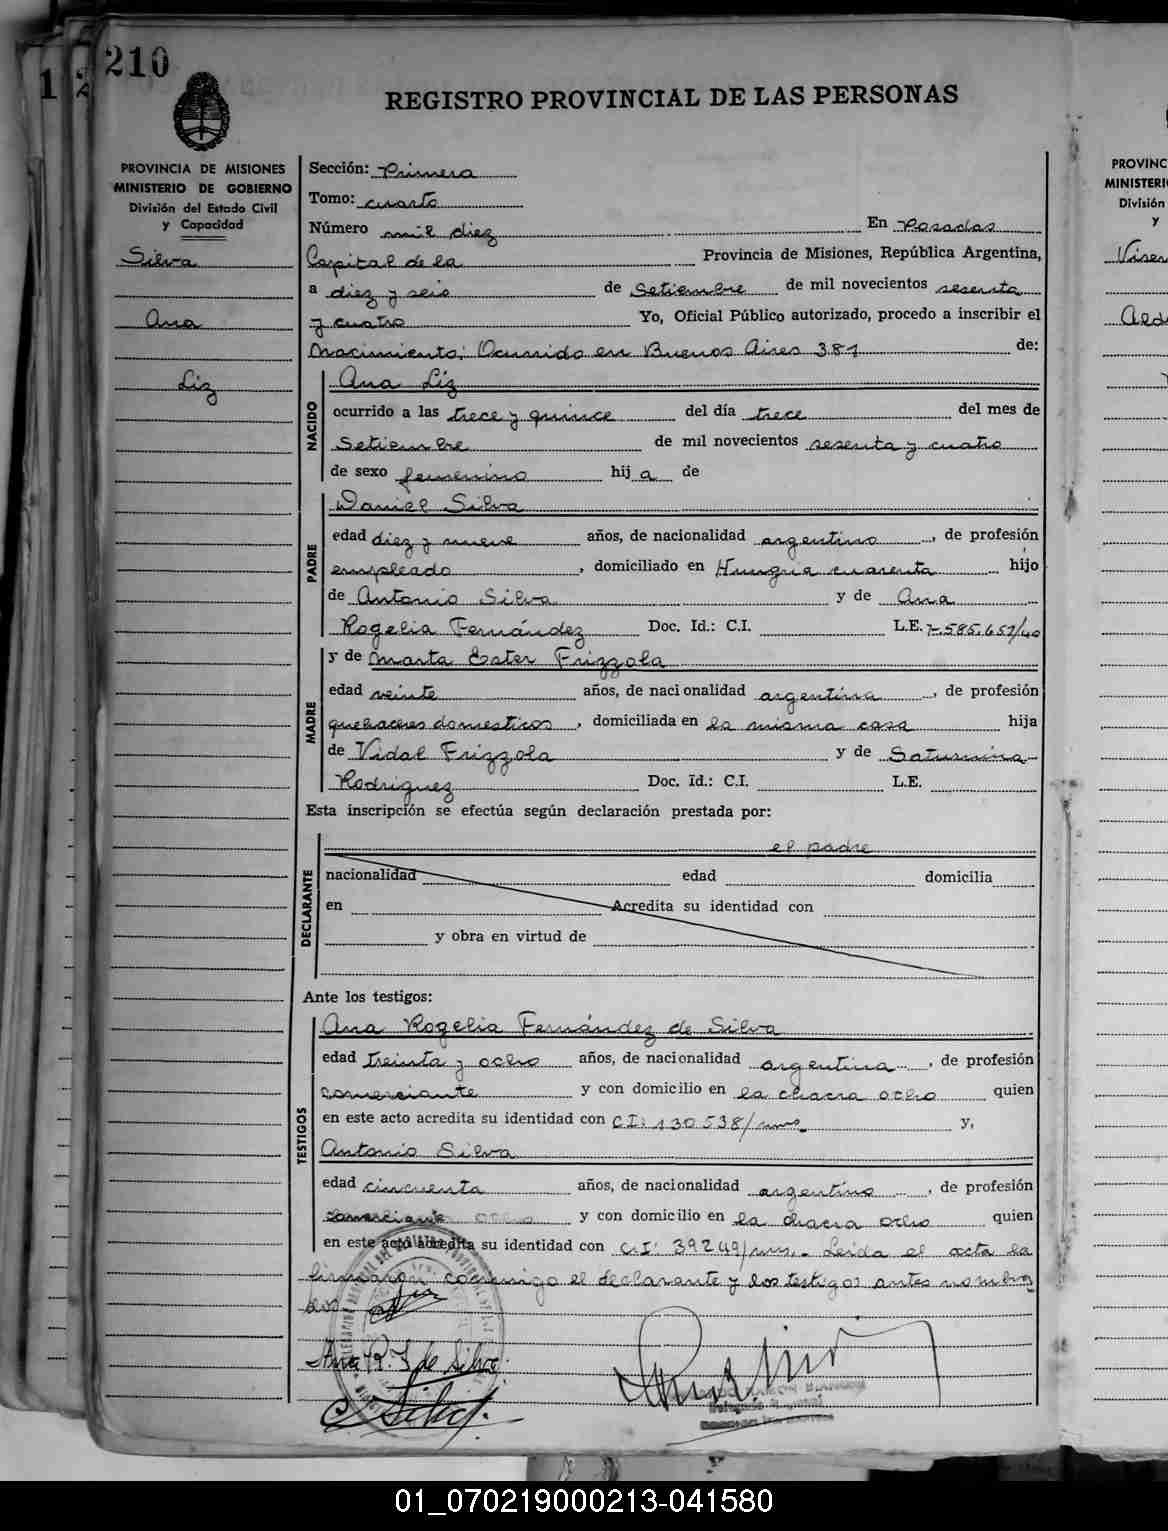 210
1
2
REGISTRO PROVINCIAL DE LAS PERSONAS
PROVINCIA DE MISIONES
MINISTERIO DE GOBIERNO
División del Estado Civil
y Capacidad
Silva
Ana
Liz
Sección: Primera
Tomo: cuarto
Número mil diez En Posadas
Capital de la Provincia de Misiones, República Argentina,
a diez y seis de Setiembre de mil novecientos sesenta
y cuatro Yo, Oficial Público autorizado, procedo a inscribir el
Nacimiento: Ocurrido en Buenos Aires 381 de:
NACIDO
Ana Liz
ocurrido a las trece y quince del día trece del mes de
Setiembre de mil novecientos sesenta y cuatro
de sexo femenino hija de
PADRE
Daniel Silva
edad diez y nueve años, de nacionalidad argentino, de profesión
empleado, domiciliado en Hungria cuarenta hijo
de Antonio Silva y de Ana
Rogelia Fernández Doc. Id.: C.I. L.E. 7.585.657/40
MADRE
y de Marta Ester Frizzola
edad veinte años, de nacionalidad argentina, de profesión
quehaceres domesticos, domiciliada en la misma casa hija
de Vidal Frizzola y de Saturnina
Rodriguez Doc. Id.: C.I. L.E.
Esta inscripción se efectúa según declaración prestada por:
DECLARANTE
el padre
nacionalidad edad domicilia
en Acredita su identidad con
y obra en virtud de
Ante los testigos:
TESTIGOS
Ana Rogelia Fernández de Silva
edad treinta y ocho años, de nacionalidad argentina, de profesión
comerciante y con domicilio en la chacra ocho quien
en este acto acredita su identidad con C.I: 130538/mnes. y,
Antonio Silva
edad cincuenta años, de nacionalidad argentino, de profesión
comerciante y con domicilio en la chacra ocho quien
en este acto acredita su identidad con C.I: 39249/mnes.- Leida el acta la
firmaron conmigo el declarante y los testigos antes nombra
dos
Ana R. F de Silva.
Silva.
PROVINC
MINISTERI
División
y
01_070219000213-041580